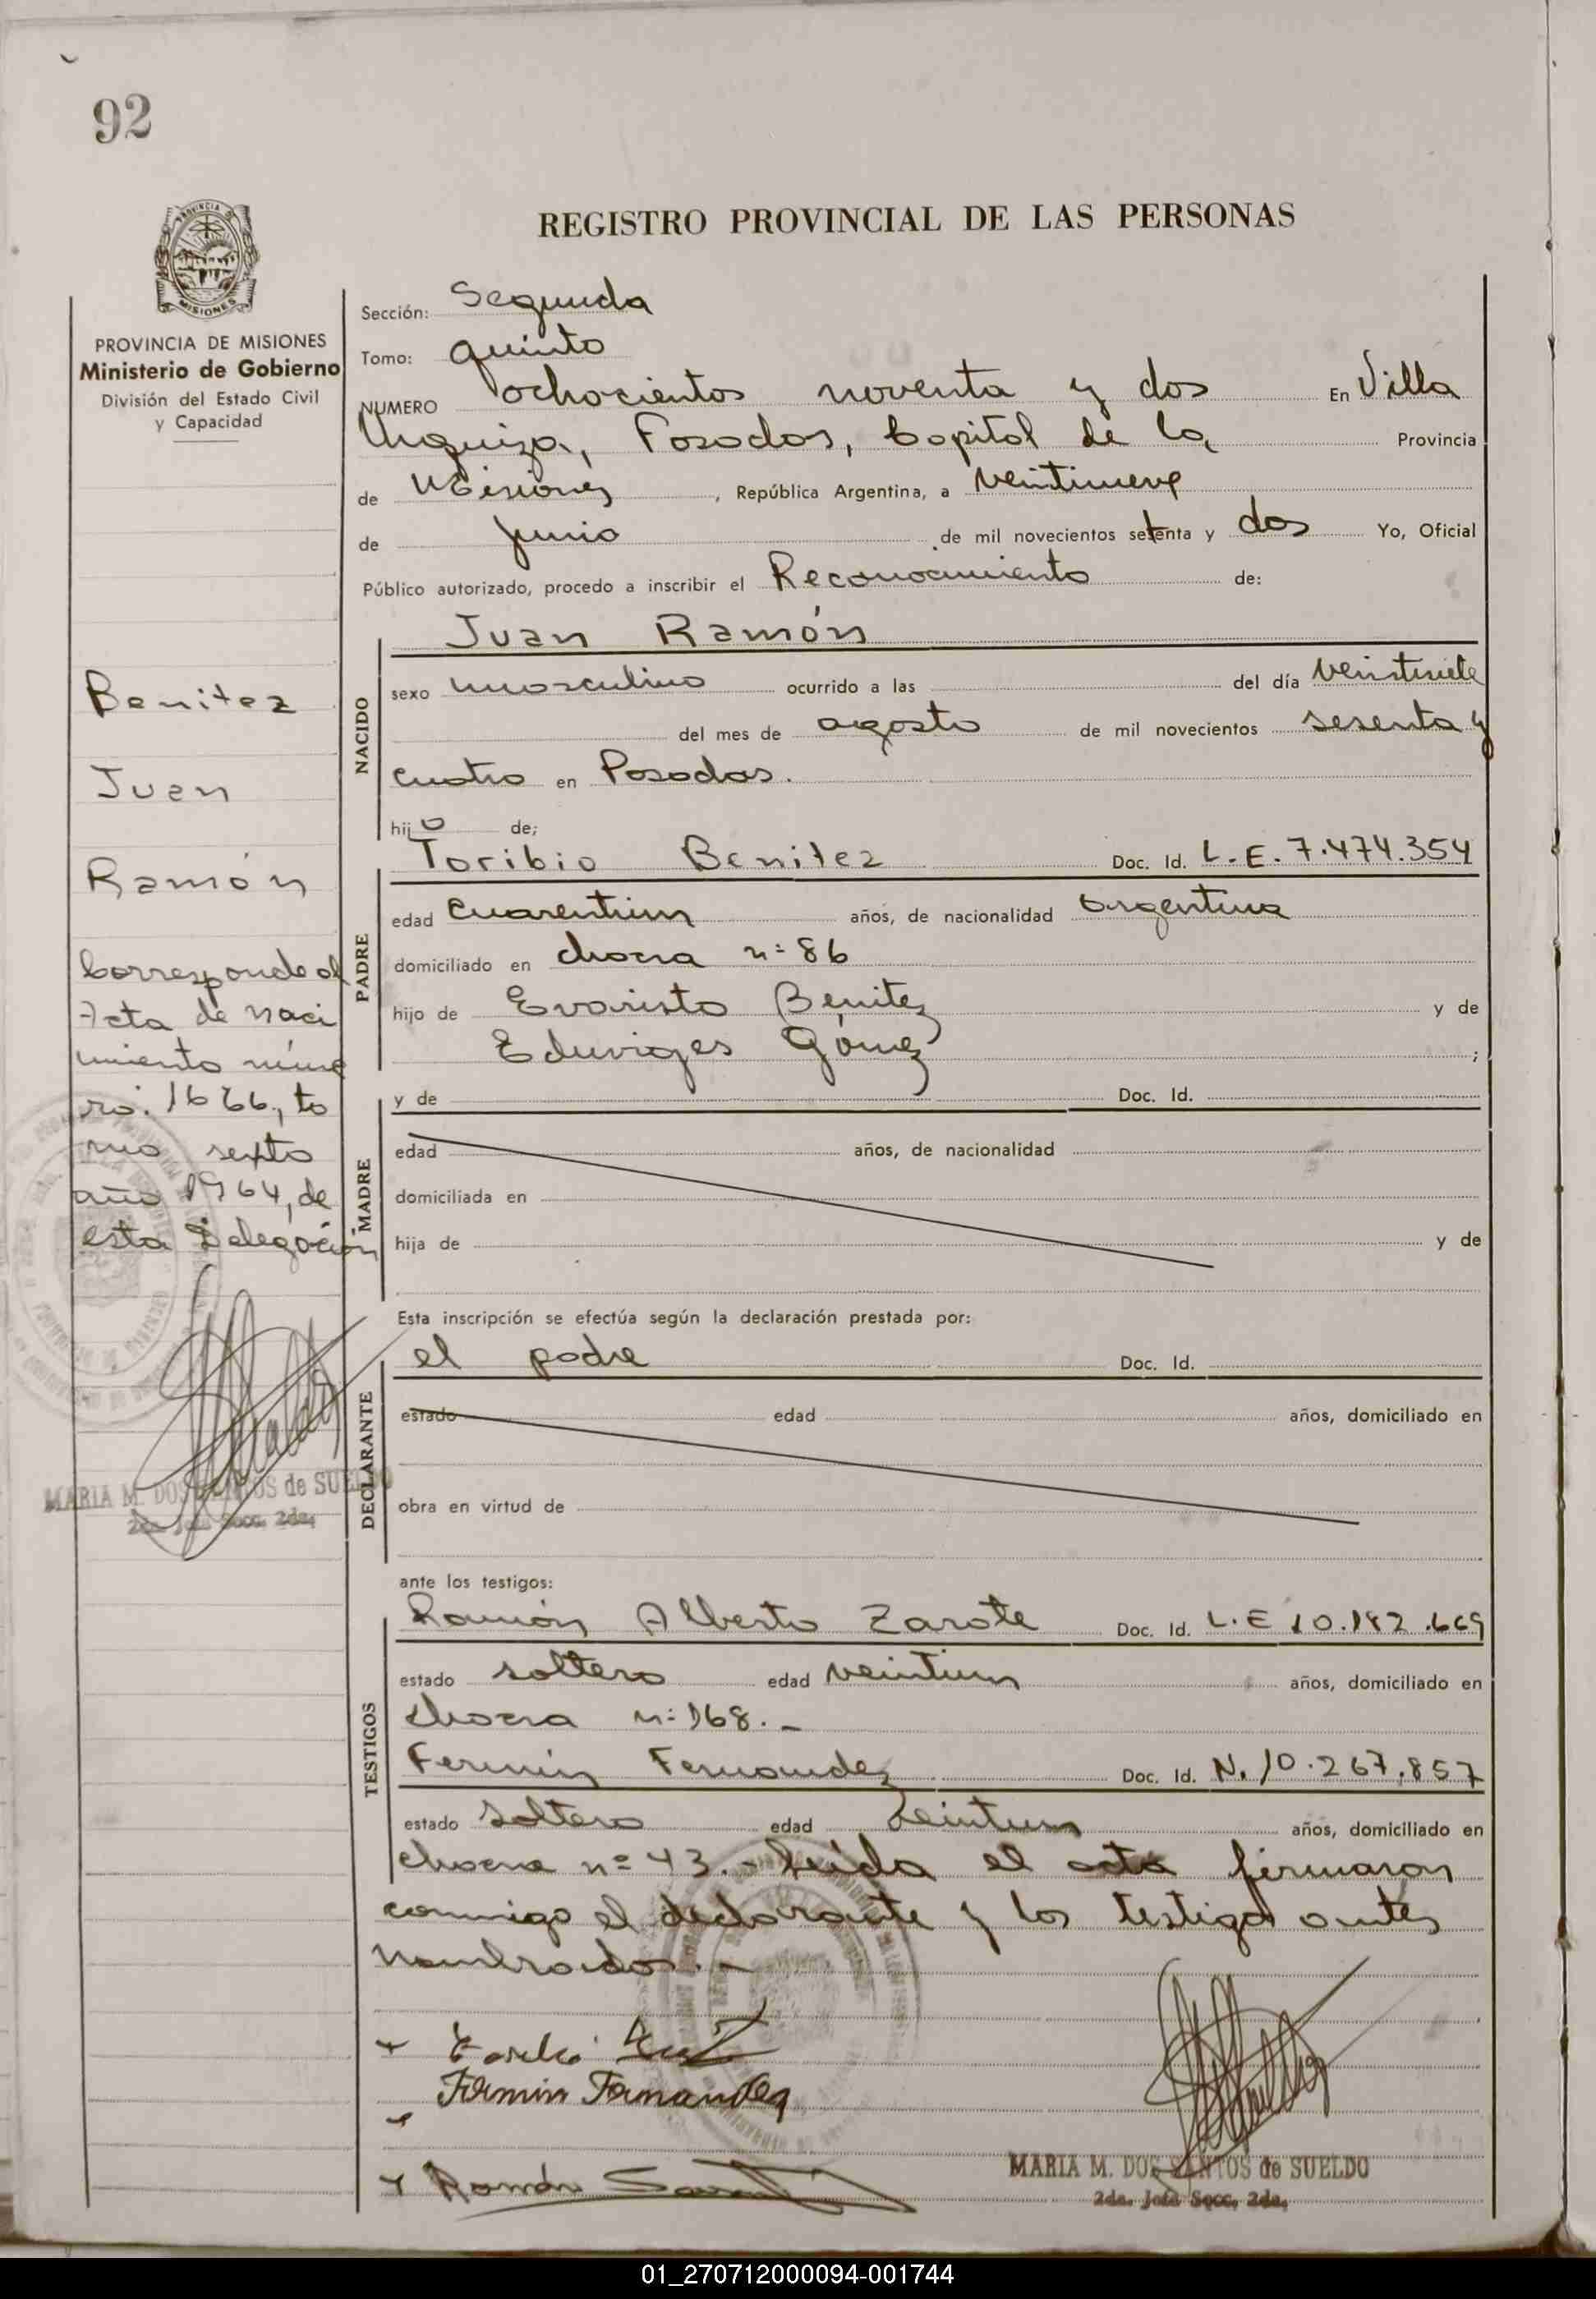 92
PROVINCIA DE
MISIONES
REGISTRO PROVINCIAL DE LAS PERSONAS
PROVINCIA DE MISIONES
Ministerio de Gobierno
División del Estado Civil
y Capacidad
Benitez
Juan
Ramón
Corresponde al
Acta de naci
miento núme
ro. 1666, to
mo sexto
año 1964, de
esta Delegación
MARIA M. DOS SANTOS de SUELDO
2da. Jefa Secc. 2da.
Sección: Segunda
Tomo: quinto
NUMERO ochocientos noventa y dos En Villa
Urquiza, Posadas, Capital de la Provincia
de Misiones, República Argentina, a veintinueve
de junio de mil novecientos setenta y dos Yo, Oficial
Público autorizado, procedo a inscribir el Reconocimiento de:
Juan Ramón
NACIDO
sexo masculino ocurrido a las del día veintisiete
del mes de agosto de mil novecientos sesenta y
cuatro en Posadas.
hijo de;
PADRE
Toribio Benitez Doc. Id. L.E. 7.474.354
edad cuarentiun años, de nacionalidad argentina
domiciliado en chacra nº 86
hijo de Evaristo Benitez y de
Eduviges Gómez ;
MADRE
y de Doc. Id.
edad años, de nacionalidad
domiciliada en
hija de y de
Esta inscripción se efectúa según la declaración prestada por:
DECLARANTE
el padre Doc. Id.
estado edad años, domiciliado en
obra en virtud de
ante los testigos:
TESTIGOS
Ramón Alberto Zarate Doc. Id. L.E 10.182.669
estado soltero edad veintiun años, domiciliado en
chacra nº 168.-
Fermin Fernandez Doc. Id. N. 10.267.857
estado soltero edad veintiun años, domiciliado en
chacra nº 43.- Leida el acta firmaron
conmigo el declarante y los testigos antes
nombrados.-
Fermin Fernandez
Ramón
MARIA M. DOS SANTOS de SUELDO
2da. Jefa Secc. 2da.
01_270712000094-001744